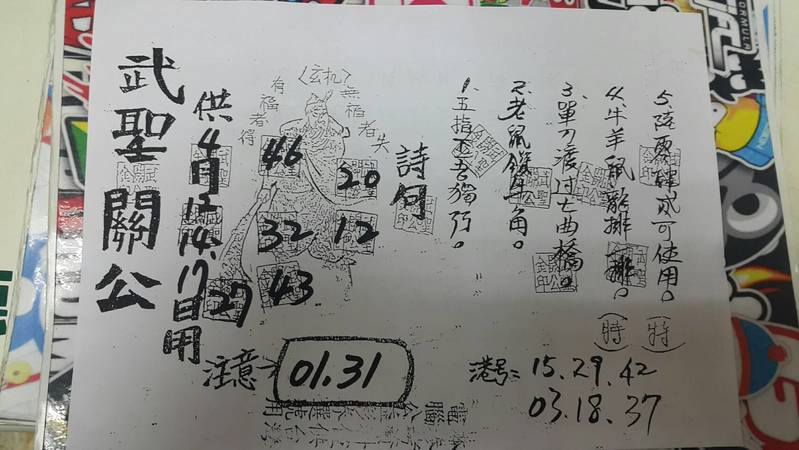 武聖關公
供4月12.14.17日用
〈玄机〉
有福者得
無福者失
46
20
32
12
43
27
詩句
1.五指
2.老鼠 牛角。
3.單刀渡过七曲橋。
4.牛羊鼠 排一排。(特)
5. 可使用。(特)
注意
01.31
港号=15.29.42
03.18.37